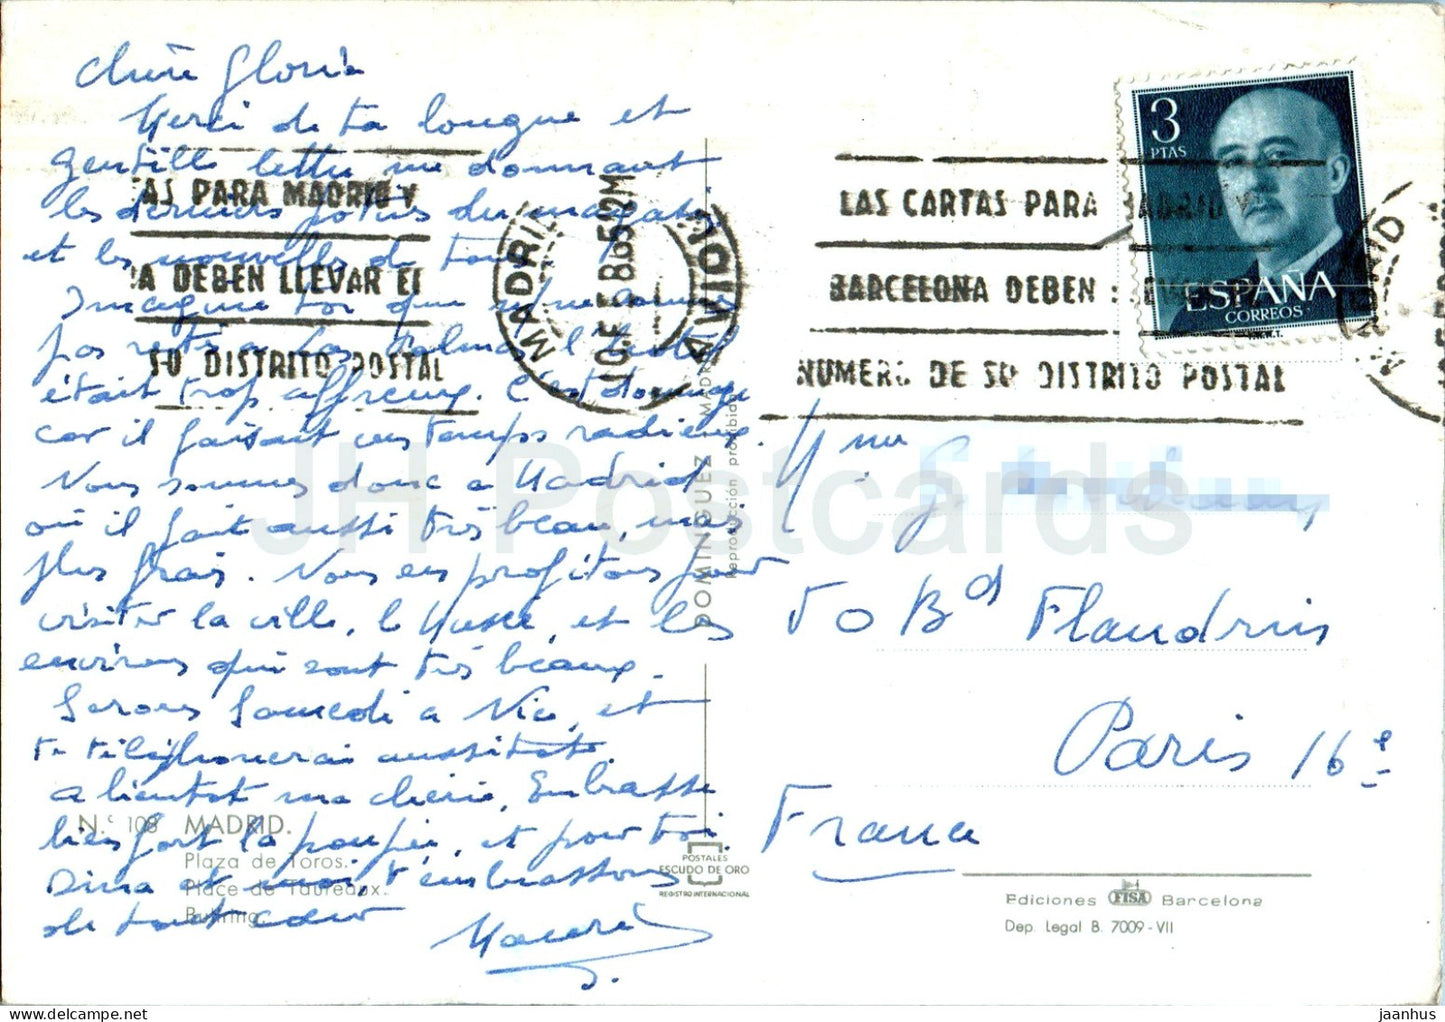 Chère Gloria
Merci de ta longue et
gentille lettre me donnant
les derniers potins du magasin,
et les nouvelles de tous.
Imagine toi que nous ne sommes
pas restés a Las Palmas, l'hotel
était trop affreux. C'est dommage
car il faisait un temps radieux.
Nous sommes donc a Madrid
où il fait aussi très beau, mais
plus frais. Nous en profitons pour
visiter la ville, le Musée, et les
environs qui sont très beaux.
Serons Samedi a Nice, et
te téléphonerai aussitôt.
a bientot ma cherie, Embrasse
bien fort la poupée, et pour toi
Dina et moi, t'embrassons
de tout cœur
N.º 108 MADRID.
Plaza de Toros.
Place de Taureaux.
Bullring.
TAS PARA MADRID Y
NA DEBEN LLEVAR EL
SU DISTRITO POSTAL
MADRID
10.FEB 65 12M
AVION
LAS CARTAS PARA MADRID Y
BARCELONA DEBEN LLEVAR EL
NUMERO DE SU DISTRITO POSTAL
3
PTAS
ESPAÑA
CORREOS
F.N.M.T.
MADRID
DOMINGUEZ - MADRID
Reproducción prohibida
POSTALES
ESCUDO DE ORO
REGISTRO INTERNACIONAL
Mme G.
50 Bd Flandrin
Paris 16e
France
Ediciones FISA Barcelona
Dep. Legal B. 7009-VII
JH Postcards
jaanhus